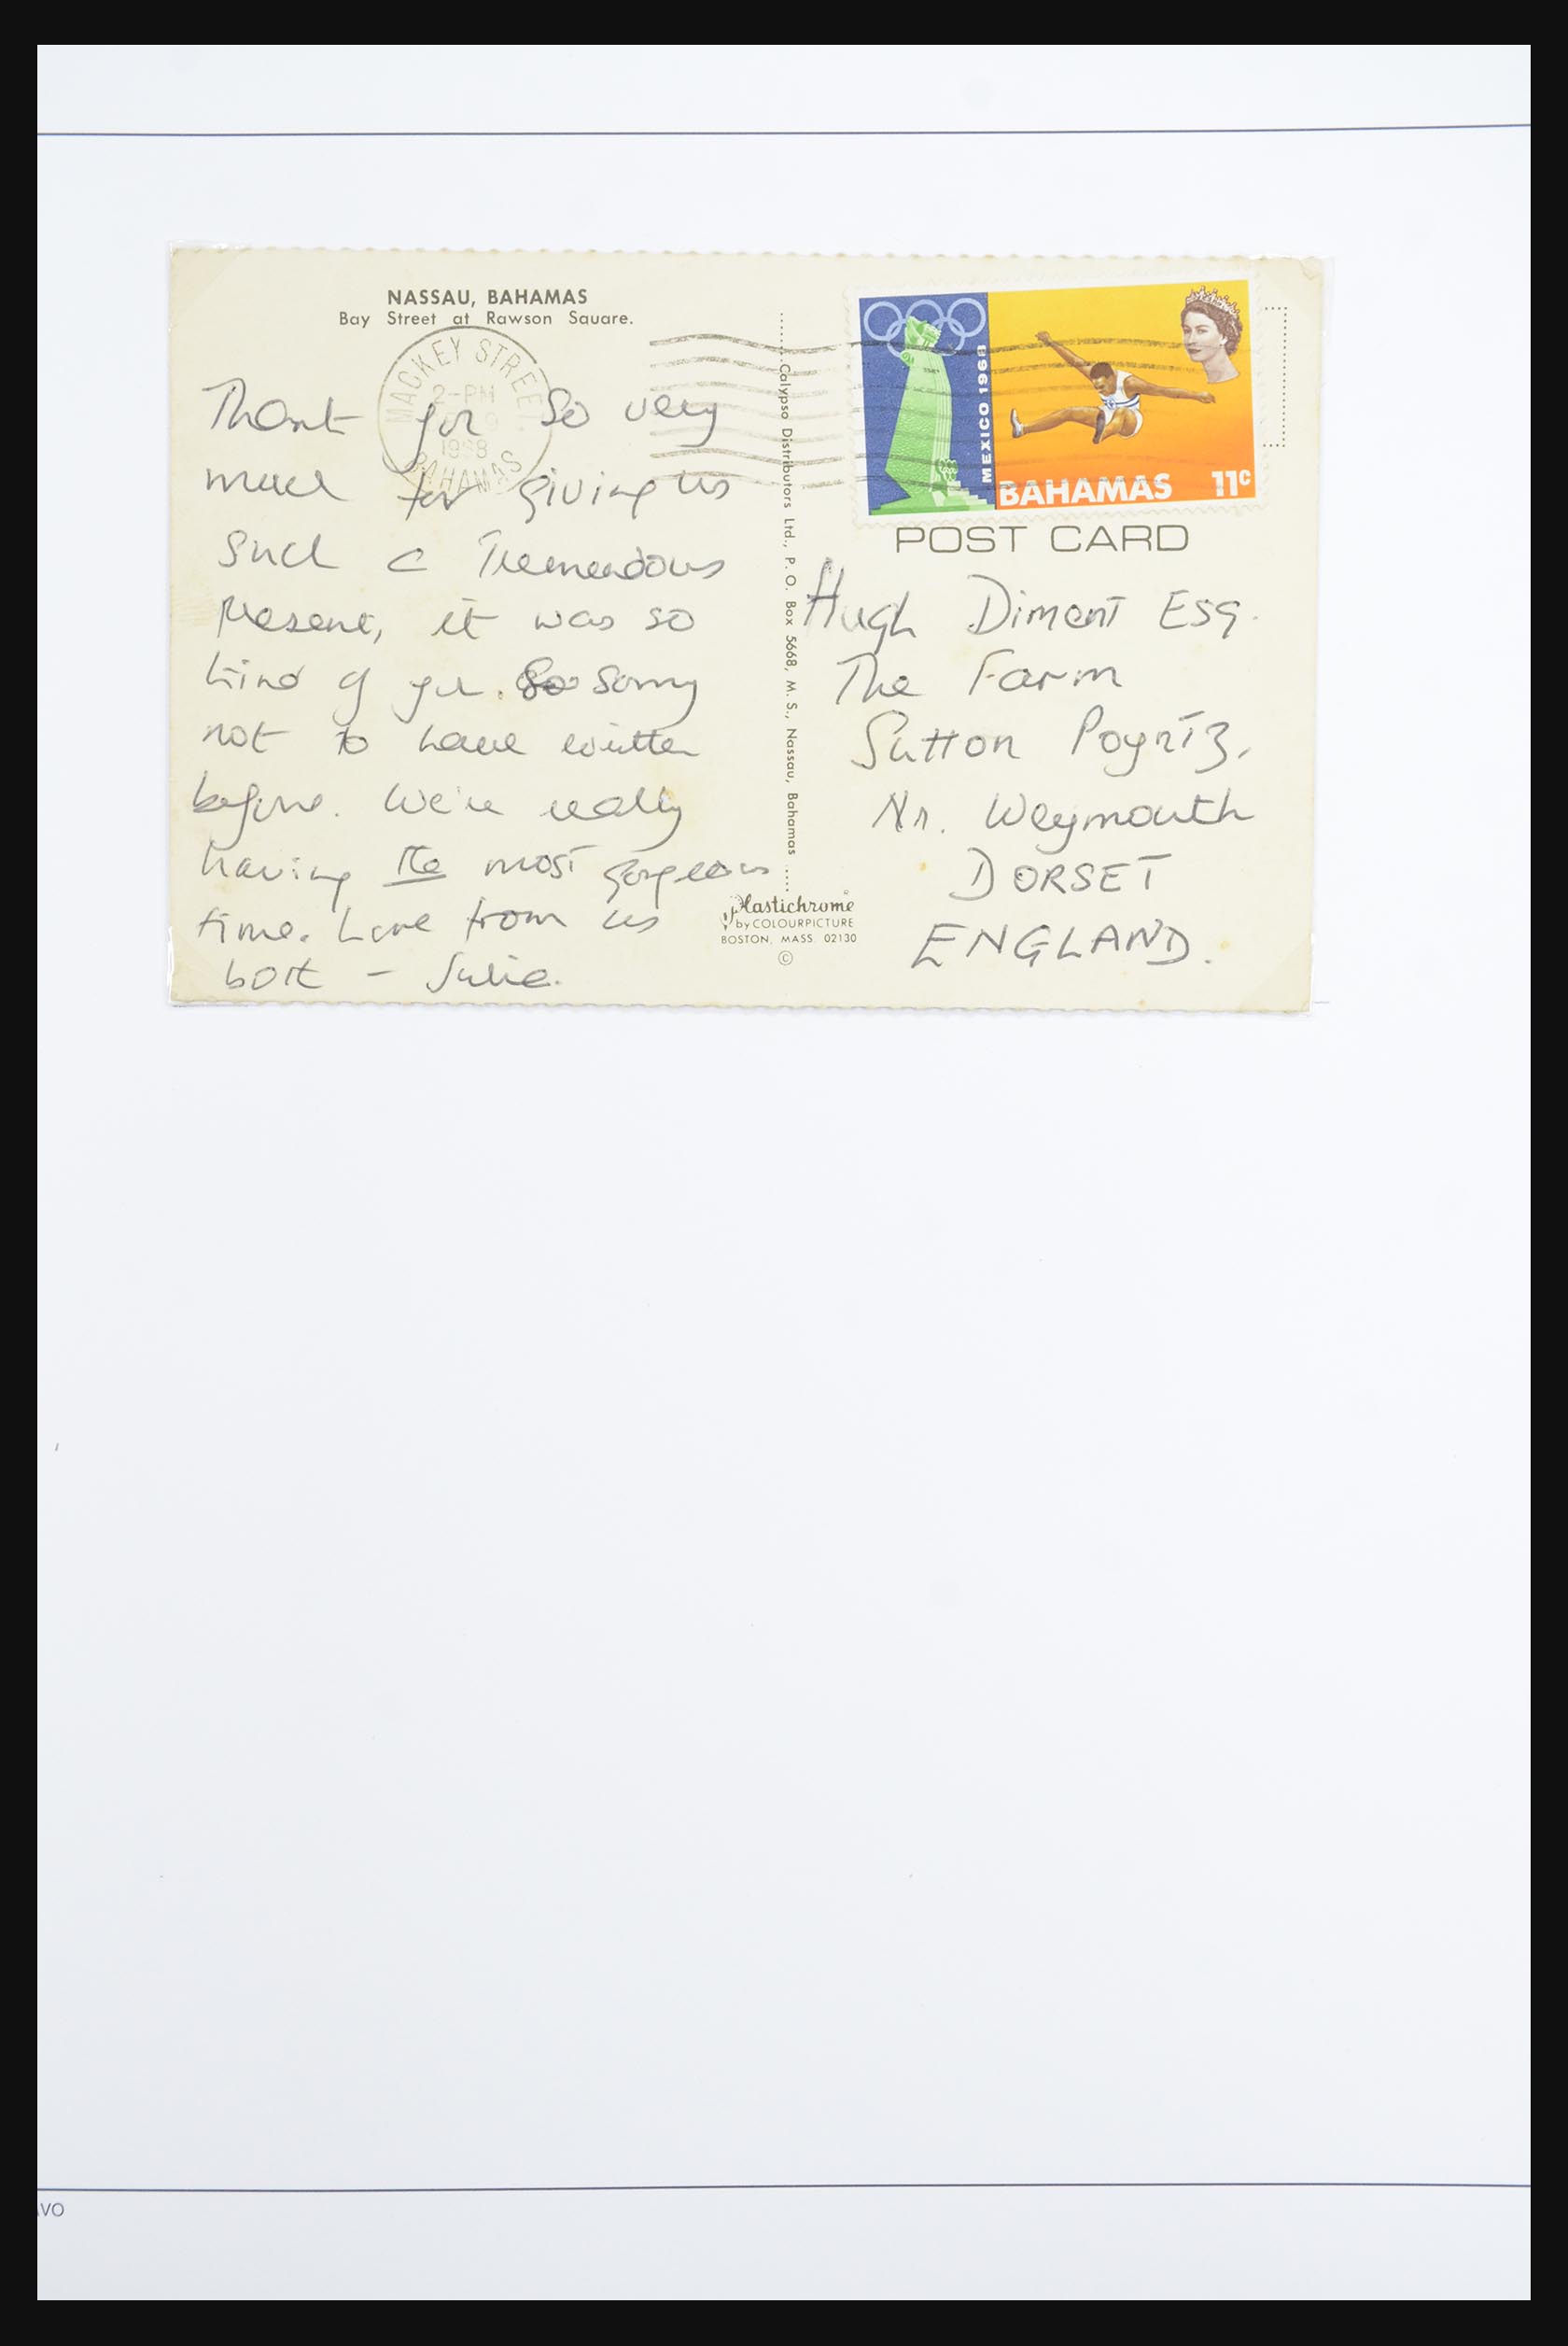 NASSAU, BAHAMAS
Bay Street at Rawson Square.
MACKEY STREET
2-PM
1968
BAHAMAS
Thank you so very
much for giving us
such a tremendous
present, it was so
kind of you. So sorry
not to have written
before. We're really
having the most gorgeous
time. Love from us
both - Julie.
Calypso Distributors Ltd., P. O. Box 5668, M. S., Nassau, Bahamas
Plastichrome
by COLOURPICTURE
BOSTON, MASS. 02130
©
MEXICO 1968
BAHAMAS 11c
POST CARD
Hugh Diment Esq.
The Farm
Sutton Poyntz,
Nr. Weymouth
DORSET
ENGLAND.